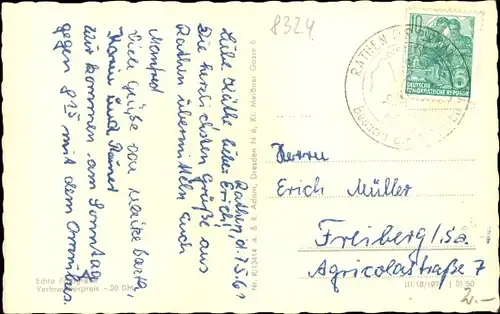 8324
Rathen, d. 7.5.61
Liebe Käthe, lieber Erich!
Die herzlichsten Grüße aus
Rathen übermitteln euch
Manfred
Viele Grüße von
Wir kommen am Sonntag
gegen 8 15 mit dem Omnibus.
Echte
Verbraucherpreis -.20 DM
Nr. R/1314 A. & R. Adam, Dresden N 6, Kl. Meißner Gasse 6
RATHEN
10
DEUTSCHE
DEMOKRATISCHE REPUBLIK
Herrn
Erich Müller
Freiberg i./Sa.
Agricolastraße 7
III/18/197 01/60
2.-